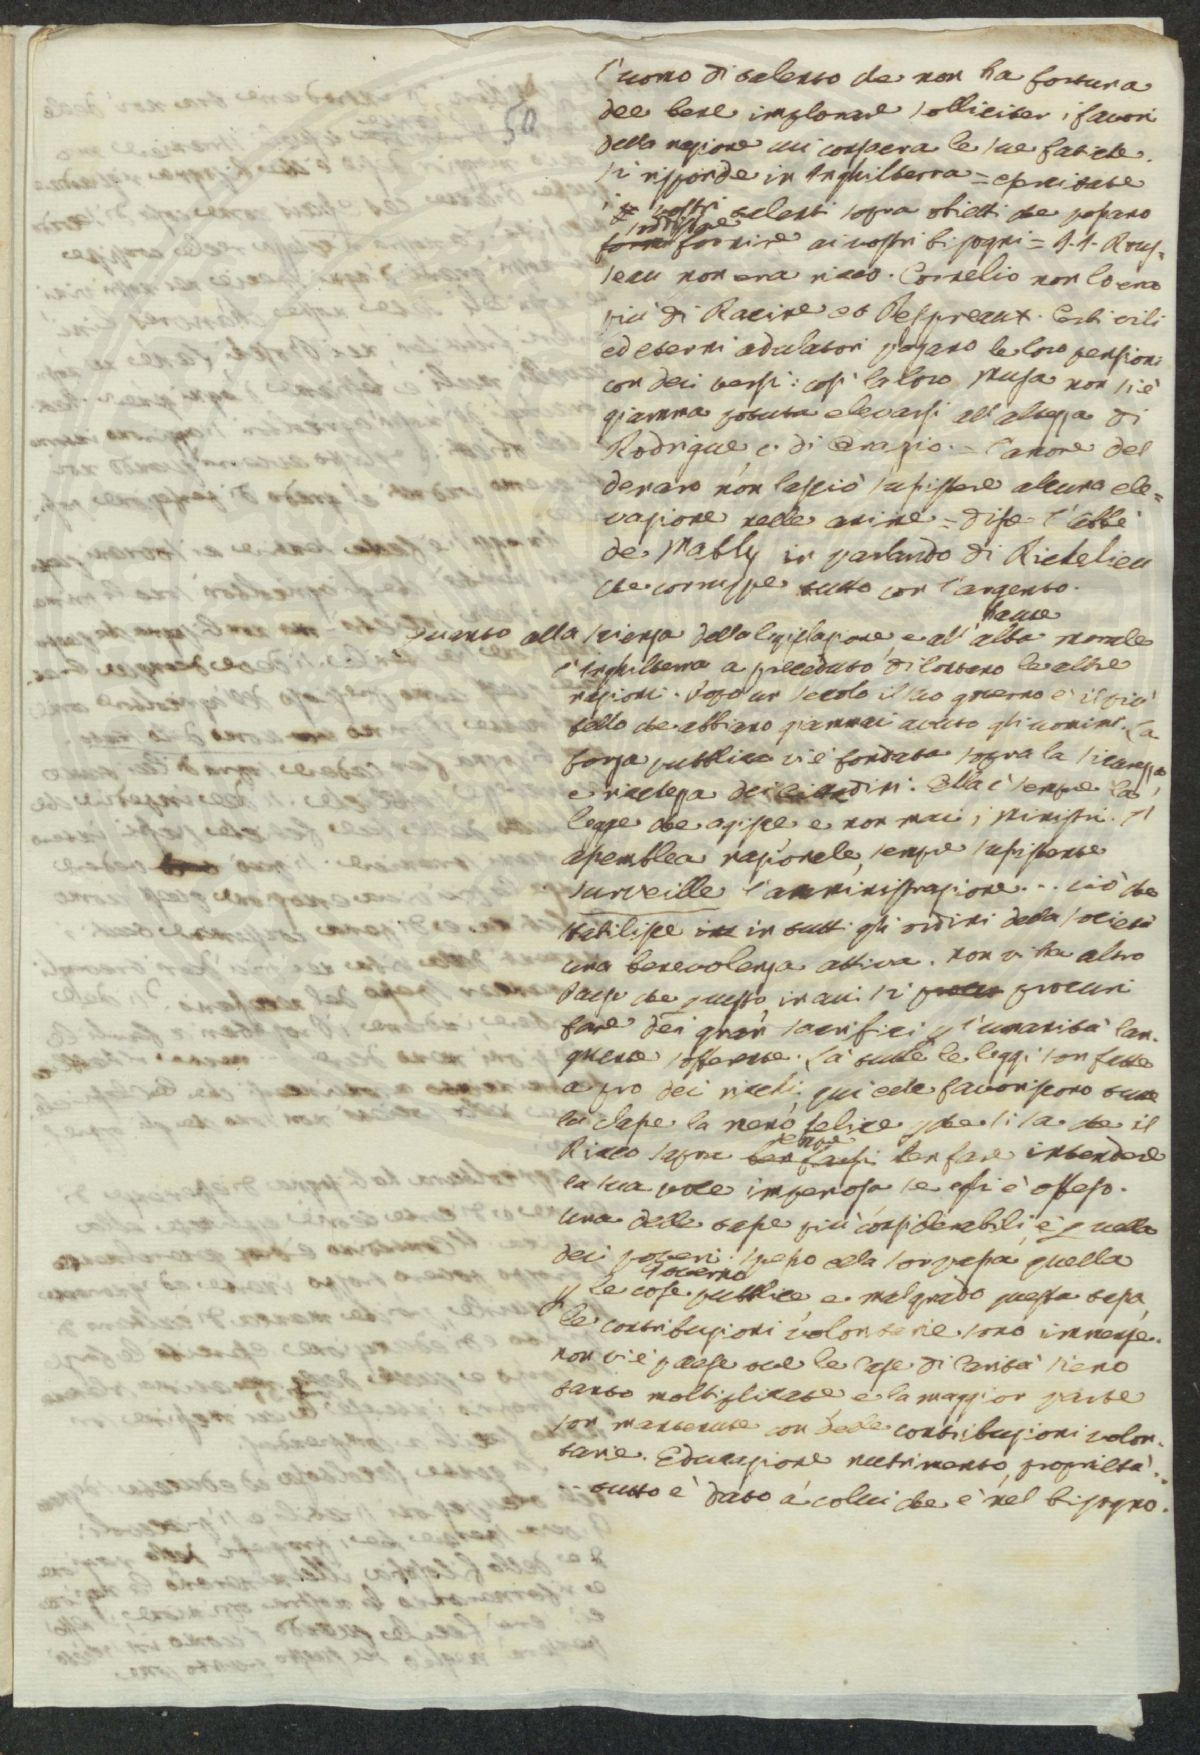 50
l'uomo di talento che non ha fortuna
dee bene implorare sollicitar i favori
della nazione cui consacra le sue fatiche.
si risponde in Inghilterra = esercitate
i vostri talenti sopra obietti che possano
soddisfare
fornire ai vostri bisogni = J. J. Rous=
seau non era ricco. Cornelio non lo era
più di Racine et Despreaux. Costi vili
ed eterni adulatori pagano le loro pensioni
con dei versi: così la loro Musa non si è
giamma potuta elevarsi all'altezza di
Rodrigue, e di Orazio. = l'amore del
denaro non lasciò sussistere alcuna ele=
vazione nelle anime = disse l'abbé
de Mably in parlando di Richelieu
che corruppe tutto con l'argento.
Quanto alla scienza della legislazione, e all' alta morale
l'Inghilterra a preceduto di lontano le altre
nazioni. Dopo un secolo il suo governo è il più
bello che abbiano giammai avuto gli uomini. La
forza pubblica vi è fondata sopra la sicurezza,
e ricchezza dei cittadini. Ella è sempre la
legge che agisce e non mai i Ministri. L'
assemblea nazionale, sempre sussistente
surveille l'amministrazione... ciò che
stabilisce in tutti gli ordini della società
una benevolenza attiva. non vi ha altro
Paese che questo in cui si procuri
fare dei gran sacrifici p l'umanità lan=
guente sofferente. Là tutte le leggi son fatte
a pro dei ricchi, qui esse favoriscono tutte
la classe la meno felice, pche si sa che il
Ricco saprà sempre ben fare intendere
la sua voce imperiosa se essi è offeso.
una delle tasse più considerabili, è quella
dei poveri. spesso ella sorpassa quella
p le cose pubbliche, e malgrado questa tassa,
le contribuzioni volontarie sono immense.
non vi è paese ove le case di Carità sieno
tanto moltiplicate e la maggior parte
son mantenute con delle contribuzioni volon=
tarie. Educazione nutrimento, proprietà..
tutto è dato a colui che è nel bisogno.